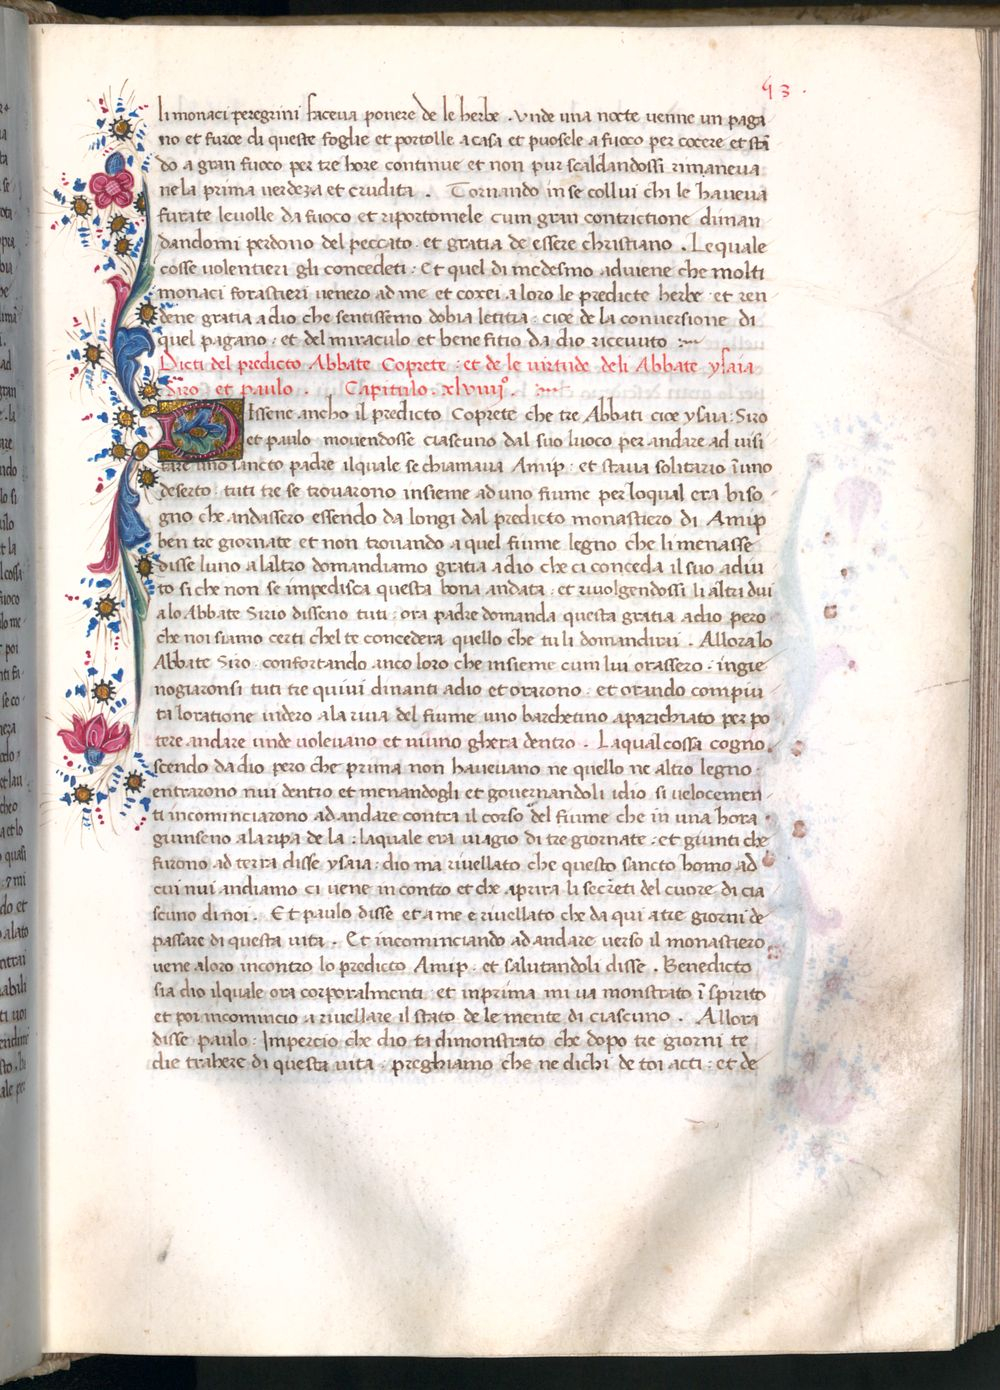 93.
li monaci peregrini faceva ponere de le herbe. Unde una nocte venne un paga
no et furoe di queste foglie et portolle a casa et puosele a fuoco per cocere et stā
do a gran fuoco per tre hore continue et non pur scaldandossi rimaneva
ne la prima verdeza et crudita. Tornando in se collui chi le haveva
furate levolle da fuoco et riportomele cum gran contrictione diman
dandomi perdono del peccato et gratia de essere christiano. Lequale
cosse volentieri gli concedeti: Et quel di medesmo adviene che molti
monaci forastieri venero ad me et coxei a loro le predicte herbe et ren
dene gratia a dio che sentissemo dobia letitia: cioe de la conversione di
quel pagano: et del miraculo et benefitio da dio ricevuto:
Dicti del predicto Abbate Coprete: et de le virtude deli Abbate ysaia
Siro et paulo. Capitulo. xlviiijº.
Dissene ancho il predicto Coprete che tre Abbati cioe ysaia: Siro
et paulo movendosse ciascuno dal suo luoco per andare ad visi
tare uno sancto padre il quale se chiamava Amip: et stava solitario ī uno
deserto: tuti tre se trovarono insieme ad uno fiume per loqual era biso
gno che andassero essendo da longi dal predicto monastiero di Amip
ben tre giornate et non trovando a quel fiume legno che li menasse
disse luno a laltro domandiamo gratia a dio che ci conceda il suo adiu
to si che non se impedisca questa bona andata: et rivolgendossi li altri dui
a lo Abbate Sirio disseno tuti: ora padre domanda questa gratia a dio pero
che noi siamo certi chel te concedera quello che tu li domandirai. Allora lo
Abbate Siro confortando anco loro che insieme cum lui orassero: ingie
nogiaronsi tuti tre quivi dinanti a dio et orarono: et orando compiu
ta loratione videro a la riva del fiume uno barchetino aparichiato per po
tere andare unde volevano et niuno ghera dentro. Laqual cossa cogno
scendo da dio pero che prima non havevano ne quello ne altro legno:
entrarono nui dentro et menandogli et governandoli idio si velocemen
ti incominciarono ad andare contra il corso del fiume che in una hora
giunseno a la ripa de la: laquale era viagio di tre giornate: et giunti che
furono ad terra disse ysaia: dio ma rivellato che questo sancto homo ad
cui nui andiamo ci vene incontro et che aprira li secreti del cuore di cia
scuno di noi. Et paulo disse et a me e rivellato che da qui a tre giorni de
passare di questa vita. Et incominciando ad andare verso il monastiero
vene a loro incontro lo predicto Amip: et salutandoli disse. Benedicto
sia dio il quale ora corporalmenti et in prima mi va monstrato ī spirito
et poi incomincio a rivellare il stato de le mente di ciascuno. Allora
disse paulo: Impercio che dio ta dimonstrato che dopo tre giorni te
die trahere di questa vita preghiamo che ne dichi de toi acti: et de